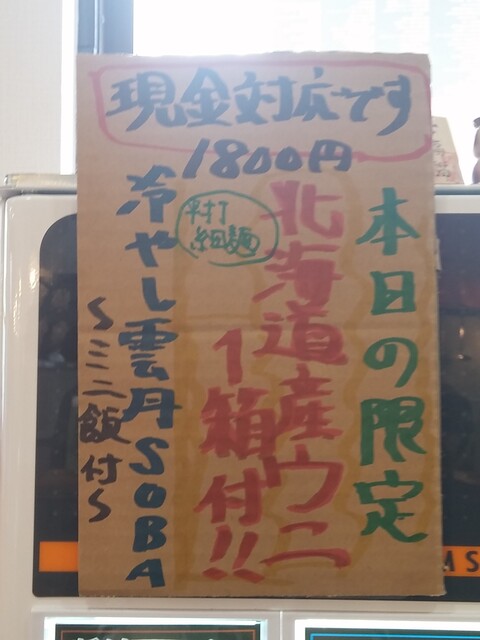 現金対応です
1800円
本日の限定
北海道産ウニ
1箱付!!
平打
細麺
冷やし雲丹SOBA
~ミニ飯付~